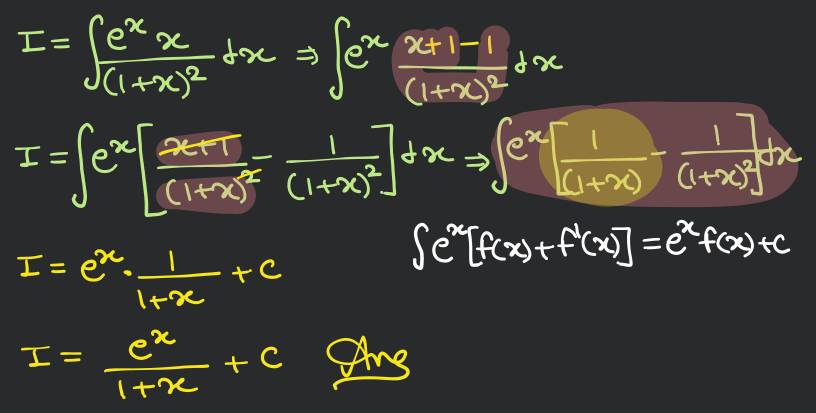 I = ∫ e^x x / (1+x)^2 dx ⇒ ∫ e^x (x+1-1) / (1+x)^2 dx
I = ∫ e^x [ (x+1) / (1+x)^2 - 1 / (1+x)^2 ] dx ⇒ ∫ e^x [ 1 / (1+x) - 1 / (1+x)^2 ] dx
∫ e^x [f(x) + f'(x)] = e^x f(x) + c
I = e^x . 1 / (1+x) + c
I = e^x / (1+x) + c Ans